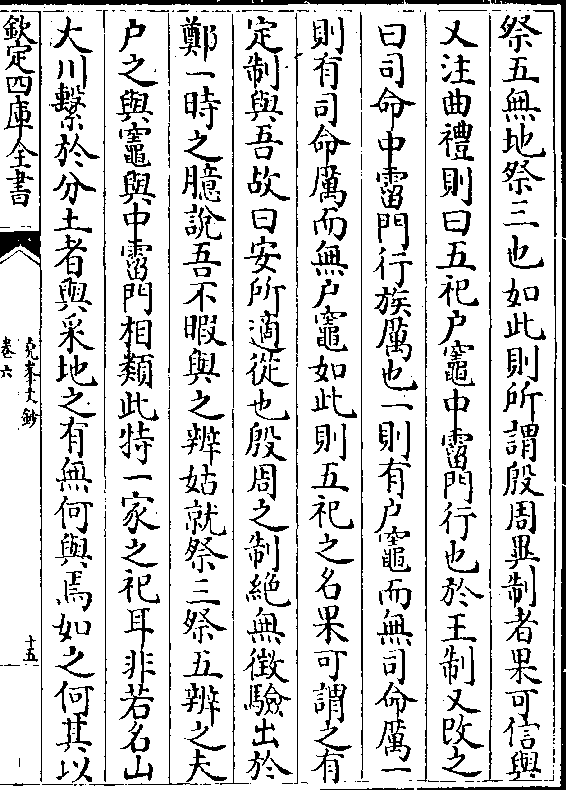 祭五無地祭三也如此則所謂殷周異制者果可信與
又注曲禮則曰五祀户竈中霤門行也於王制又改之
曰司命中霤門行族厲也一則有户竈而無司命厲一
則有司命厲而無户竈如此則五祀之名果可謂之有
定制與吾故曰安所適從也殷周之制絶無徴驗出於
鄭一時之臆說吾不暇與之辨姑就祭三祭五辨之夫
户之與竈與中霤門相類此特一家之祀耳非若名山
大川繫於分土者與采地之有無何與焉如之何其以
欽定四庫全書
堯峯文鈔
卷六
十五